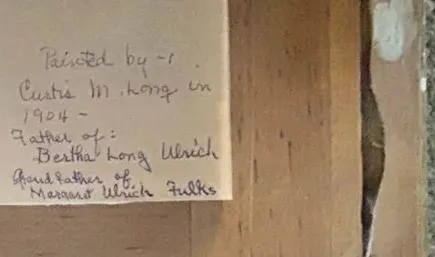 Painted by -
Curtis M. Long in
1904 -
Father of:
Bertha Long Ulrich
Grandfather of
Margaret Ulrich Fulks